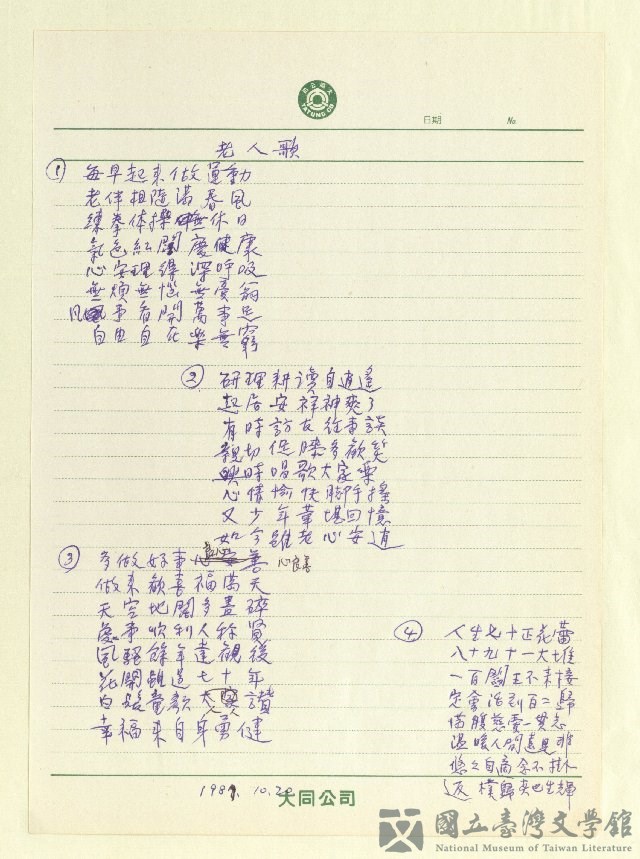 大同公司
TATUNG CO
日期 No
老人歌
① 每早起來做運動
老伴相隨滿春風
練拳体操無休日
氣色紅閏慶健康
心安理得深呼吸
無煩無惱無憂翁
凡事看開萬事足
自由自在樂無窮
② 研理耕讀自逍遙
起居安祥神爽了
有時訪友往事談
親切促膝多歡笑
興時唱歌大家樂
心情愉快腳手搖
又少年華堪回憶
如今雖老心安逍
③ 多做好事心善
心良善
做來歡喜福滿天
天空地闊多
處事 利人稱賢
風騷餘年達觀後
花開雖過七十年
白髮童歌大家讚
幸福來自身勇健
④ 人生七十正花蕾
八十九十一大堆
一百閻王不來接
定會活到百二歸
滿腹慈愛一貫志
溫暖人間遠是非
悠之自高念不掛
返樸歸 也生輝
198 .10.20
大同公司
國立臺灣文學館
National Museum of Taiwan Literature